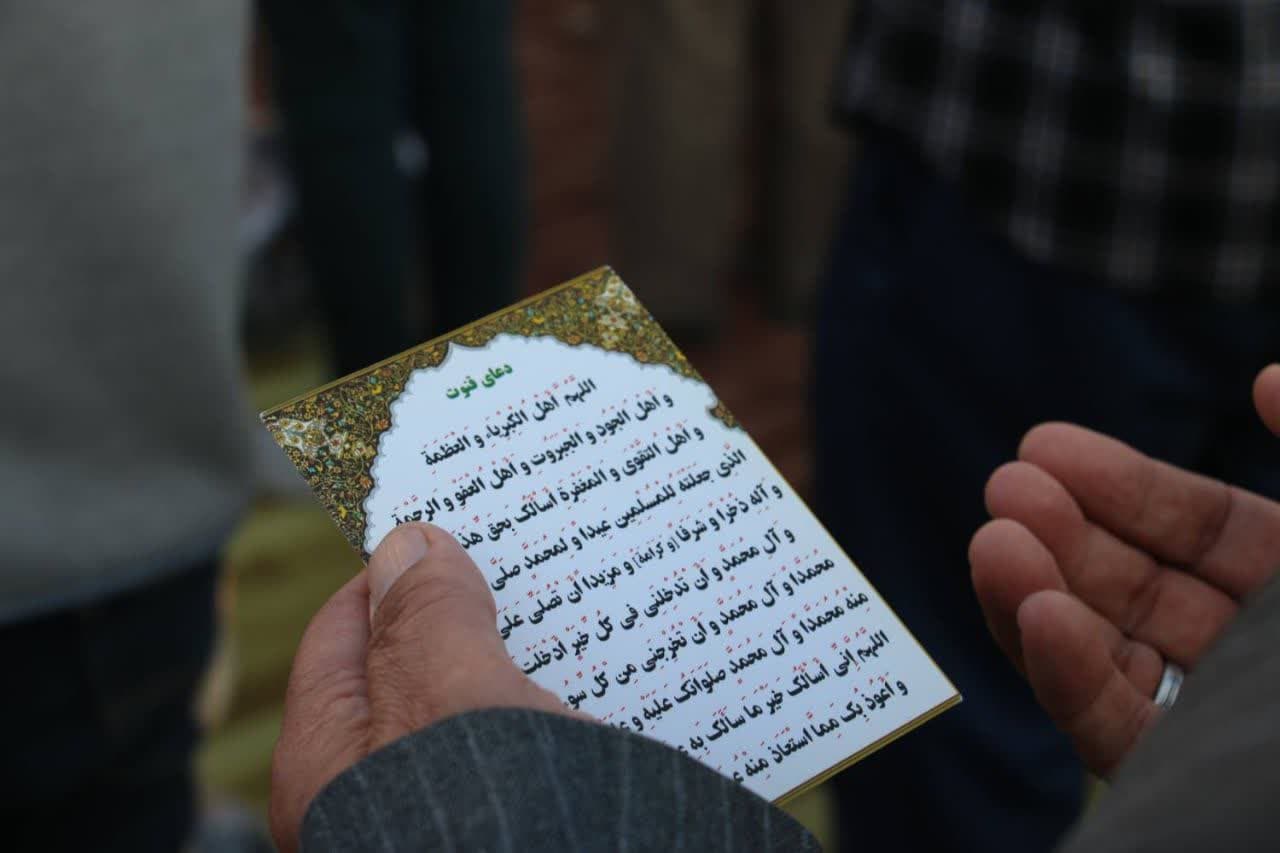 دعای قنوت
اللهُمَّ اَهْلَ الْکِبْرِیاءِ وَ الْعَظَمَةِ
وَ اَهْلَ الْجُودِ وَ الْجَبَرُوتِ وَ اَهْلَ الْعَفْوِ وَ الرَّحْمَةِ
وَ اَهْلَ التَّقْوی وَ الْمَغْفِرَةِ اَسْاَلُکَ بِحَقِّ هٰذَ
الَّذی جَعَلْتَهُ لِلْمُسْلِمینَ عیدا وَ لِمُحَمَّدٍ صَلَّی
وَ آلِهِ ذُخْرًا وَ شَرَفًا (وَ کَرامَةً) وَ مَزیدًا اَنْ تُصَلِّیَ عَلی
وَ آلِ مُحَمَّدٍ وَ اَنْ تُدْخِلَنی فی کُلِّ خَیْرٍ اَدْخَلْتَ
مُحَمَّدًا وَ آلَ مُحَمَّدٍ وَ اَنْ تُخْرِجَنی مِنْ کُلِّ سُو
مِنْهُ مُحَمَّدًا وَ آلَ مُحَمَّدٍ صَلَواتُکَ عَلَیْهِ وَ عَ
اللهُمَّ اِنّی اَسْاَلُکَ خَیْرَ ما سَاَلَکَ بِهِ
وَ اَعُوذُ بِکَ مِمَّا اسْتَعاذَ مِنْهُ عِ